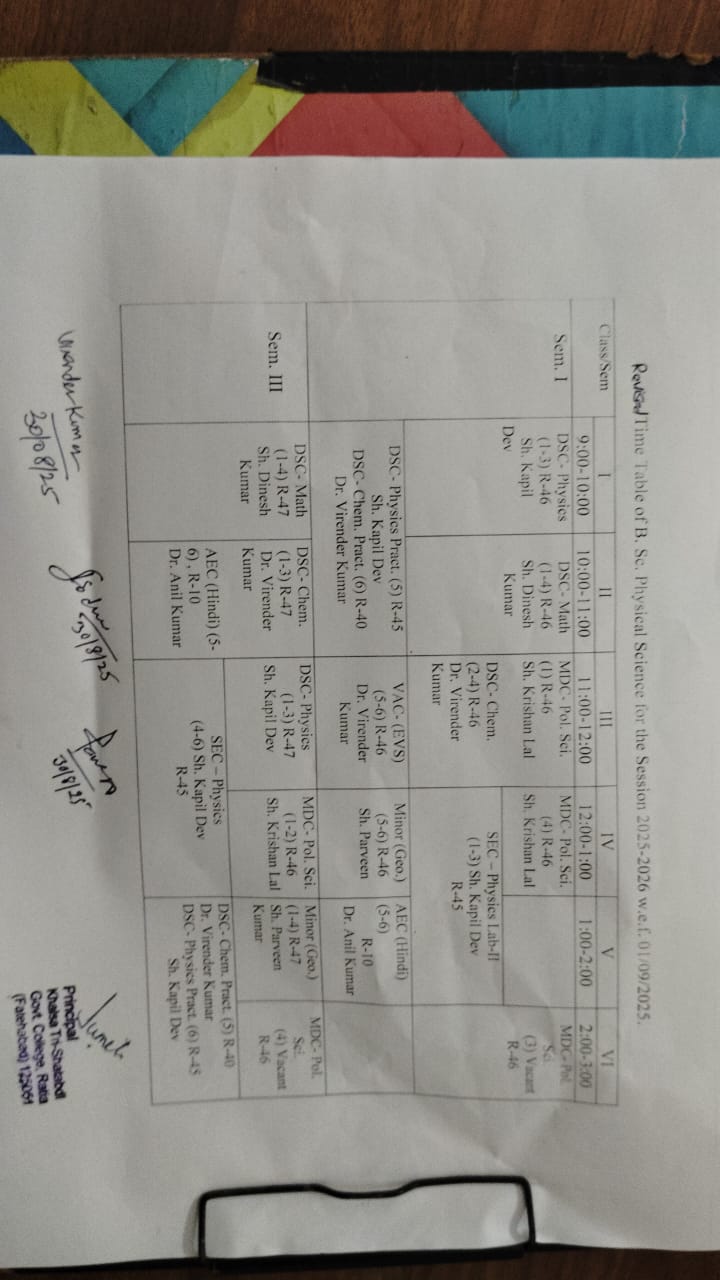 Revised Time Table of B. Sc. Physical Science for the Session 2025-2026 w.e.f. 01/09/2025.
Class/Sem I II III IV V VI
9:00-10:00 10:00-11:00 11:00-12:00 12:00-1:00 1:00-2:00 2:00-3:00
Sem. I
DSC- Physics
(1-3) R-46
Sh. Kapil
Dev
DSC- Math
(1-4) R-46
Sh. Dinesh
Kumar
MDC- Pol. Sci.
(1) R-46
Sh. Krishan Lal
MDC- Pol. Sci.
(4) R-46
Sh. Krishan Lal
MDC-Pol.
Sci.
(3) Vacant
R-46
DSC- Chem.
(2-4) R-46
Dr. Virender
Kumar
SEC – Physics Lab-II
(1-3) Sh. Kapil Dev
R-45
DSC- Physics Pract. (5) R-45
Sh. Kapil Dev
DSC- Chem. Pract. (6) R-40
Dr. Virender Kumar
VAC- (EVS)
(5-6) R-46
Dr. Virender
Kumar
Minor (Geo.)
(5-6) R-46
Sh. Parveen
AEC (Hindi)
(5-6)
R-10
Dr. Anil Kumar
Sem. III
DSC- Math
(1-4) R-47
Sh. Dinesh
Kumar
DSC- Chem.
(1-3) R-47
Dr. Virender
Kumar
DSC- Physics
(1-3) R-47
Sh. Kapil Dev
MDC- Pol. Sci.
(1-2) R-46
Sh. Krishan Lal
Minor (Geo.)
(1-4) R-47
Sh. Parveen
Kumar
MDC- Pol.
Sci.
(4) Vacant
R-46
AEC (Hindi) (5-
6) , R-10
Dr. Anil Kumar
SEC – Physics
(4-6) Sh. Kapil Dev
R-45
DSC- Chem. Pract. (5) R-40
Dr. Virender Kumar
DSC- Physics Pract. (6) R-45
Sh. Kapil Dev
Virender Kumar
30/08/25
30/8/25
30/8/25
Principal
Khalsa Tri-Shatabdi
Govt. College, Ratia
(Fatehabad) 125051